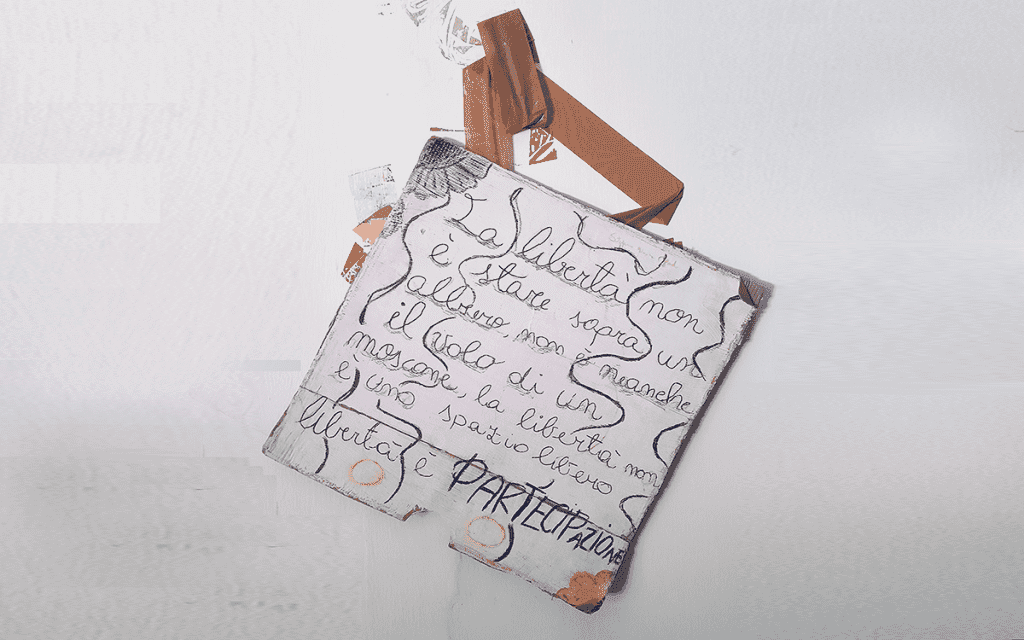 La libertà non
è stare sopra un
albero, non è neanche
il volo di un
moscone, la libertà non
è uno spazio libero
libertà è PARTECIPAZIONE